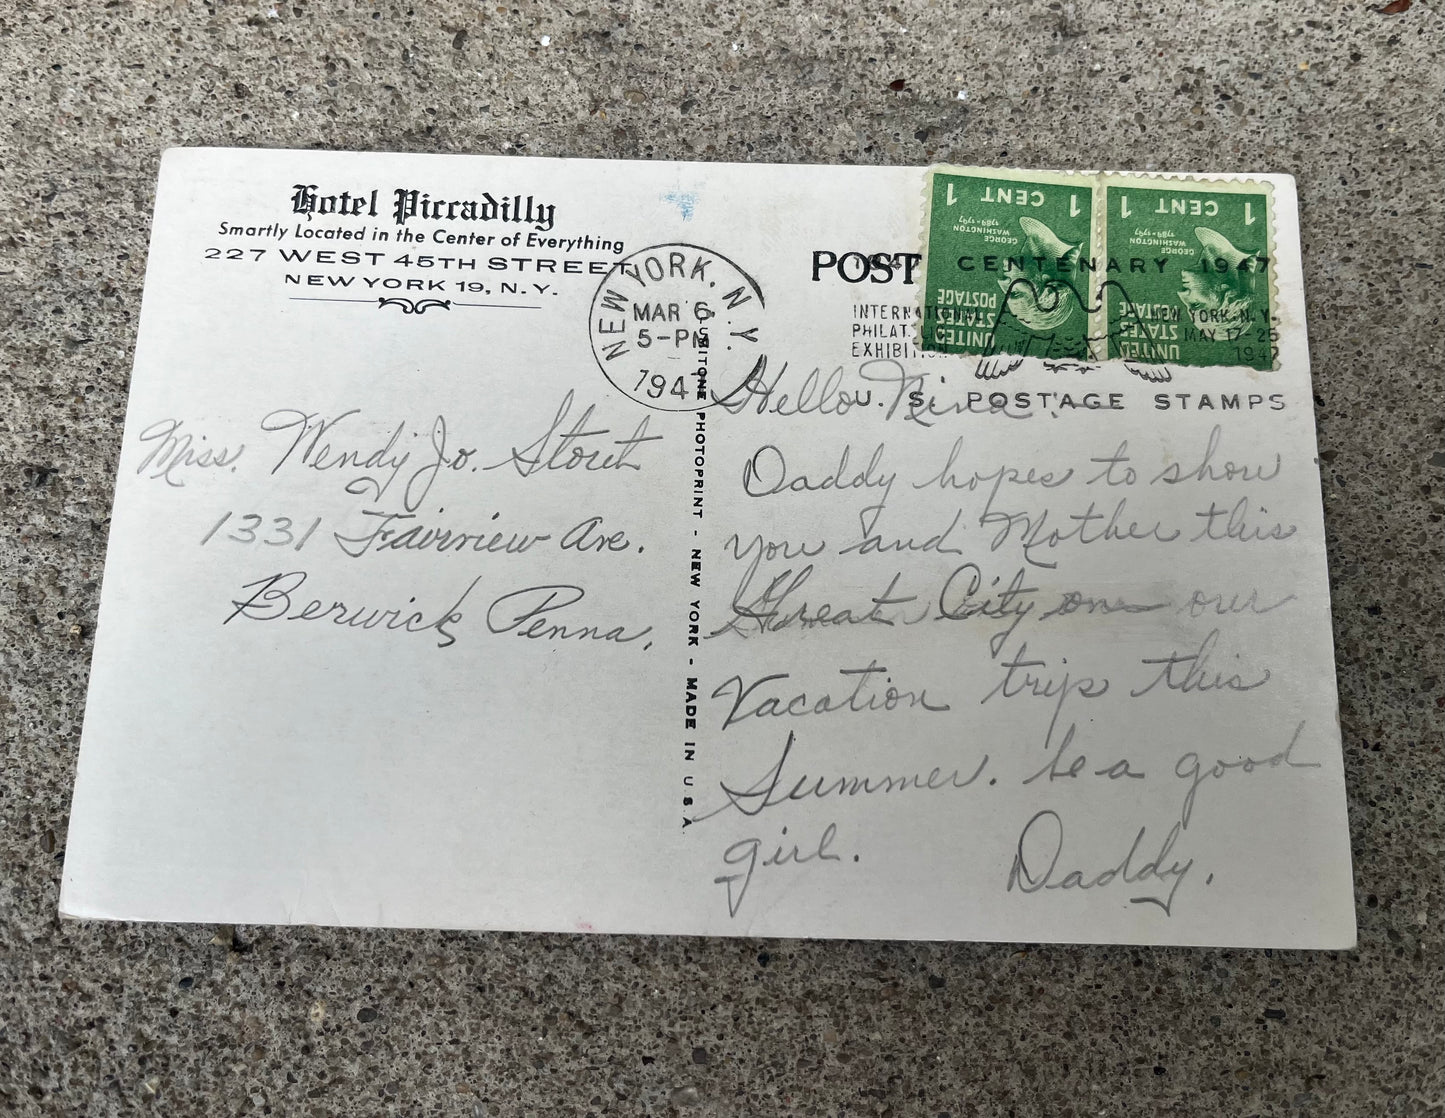 Hotel Piccadilly
Smartly Located in the Center of Everything
227 WEST 45TH STREET
NEW YORK 19, N.Y.
NEW YORK, N.Y.
MAR 6
5-PM
1947
POST
CENTENARY 1947
INTERN
PHILAT
EXHIBITI
NEW YORK, N.Y.
MAY 17-25
1947
U. S. POSTAGE STAMPS
1 CENT 1
GEORGE
WASHINGTON
1789-1797
UNITED
STATES
POSTAGE
1 CENT 1
GEORGE
WASHINGTON
1789-1797
UNITED
STATES
POSTAGE
LUMITONE PHOTOPRINT - NEW YORK - MADE IN U.S.A.
Miss. Wendy Jo. Stout
1331 Fairview Ave.
Berwick, Penna.
Hello
Daddy hopes to show
you and Mother this
Great City on our
Vacation trip this
Summer. be a good
girl.
Daddy.